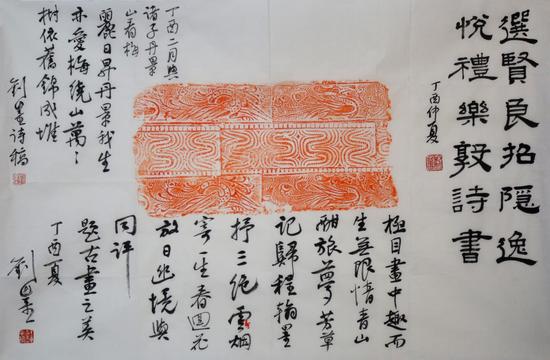 選賢良招隱逸
悅禮樂敦詩書
丁酉仲夏
丁酉二月與
諸子丹景
山看梅
麗日昇丹景我生
亦愛梅繞山萬〻
樹依舊錦成堆
劉詩稿
極目畫中趣而
生無限惜青山
酣旅夢芳草
記歸程翰墨
抒三絕雲烟
寄一生春回花
放日幽境與
同評
題古畫之美
丁酉夏
劉